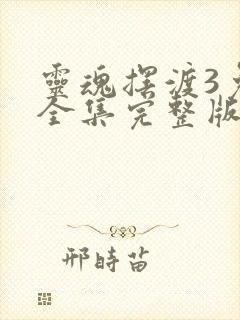 靈魂擺渡3
全集完整版
邢時苗